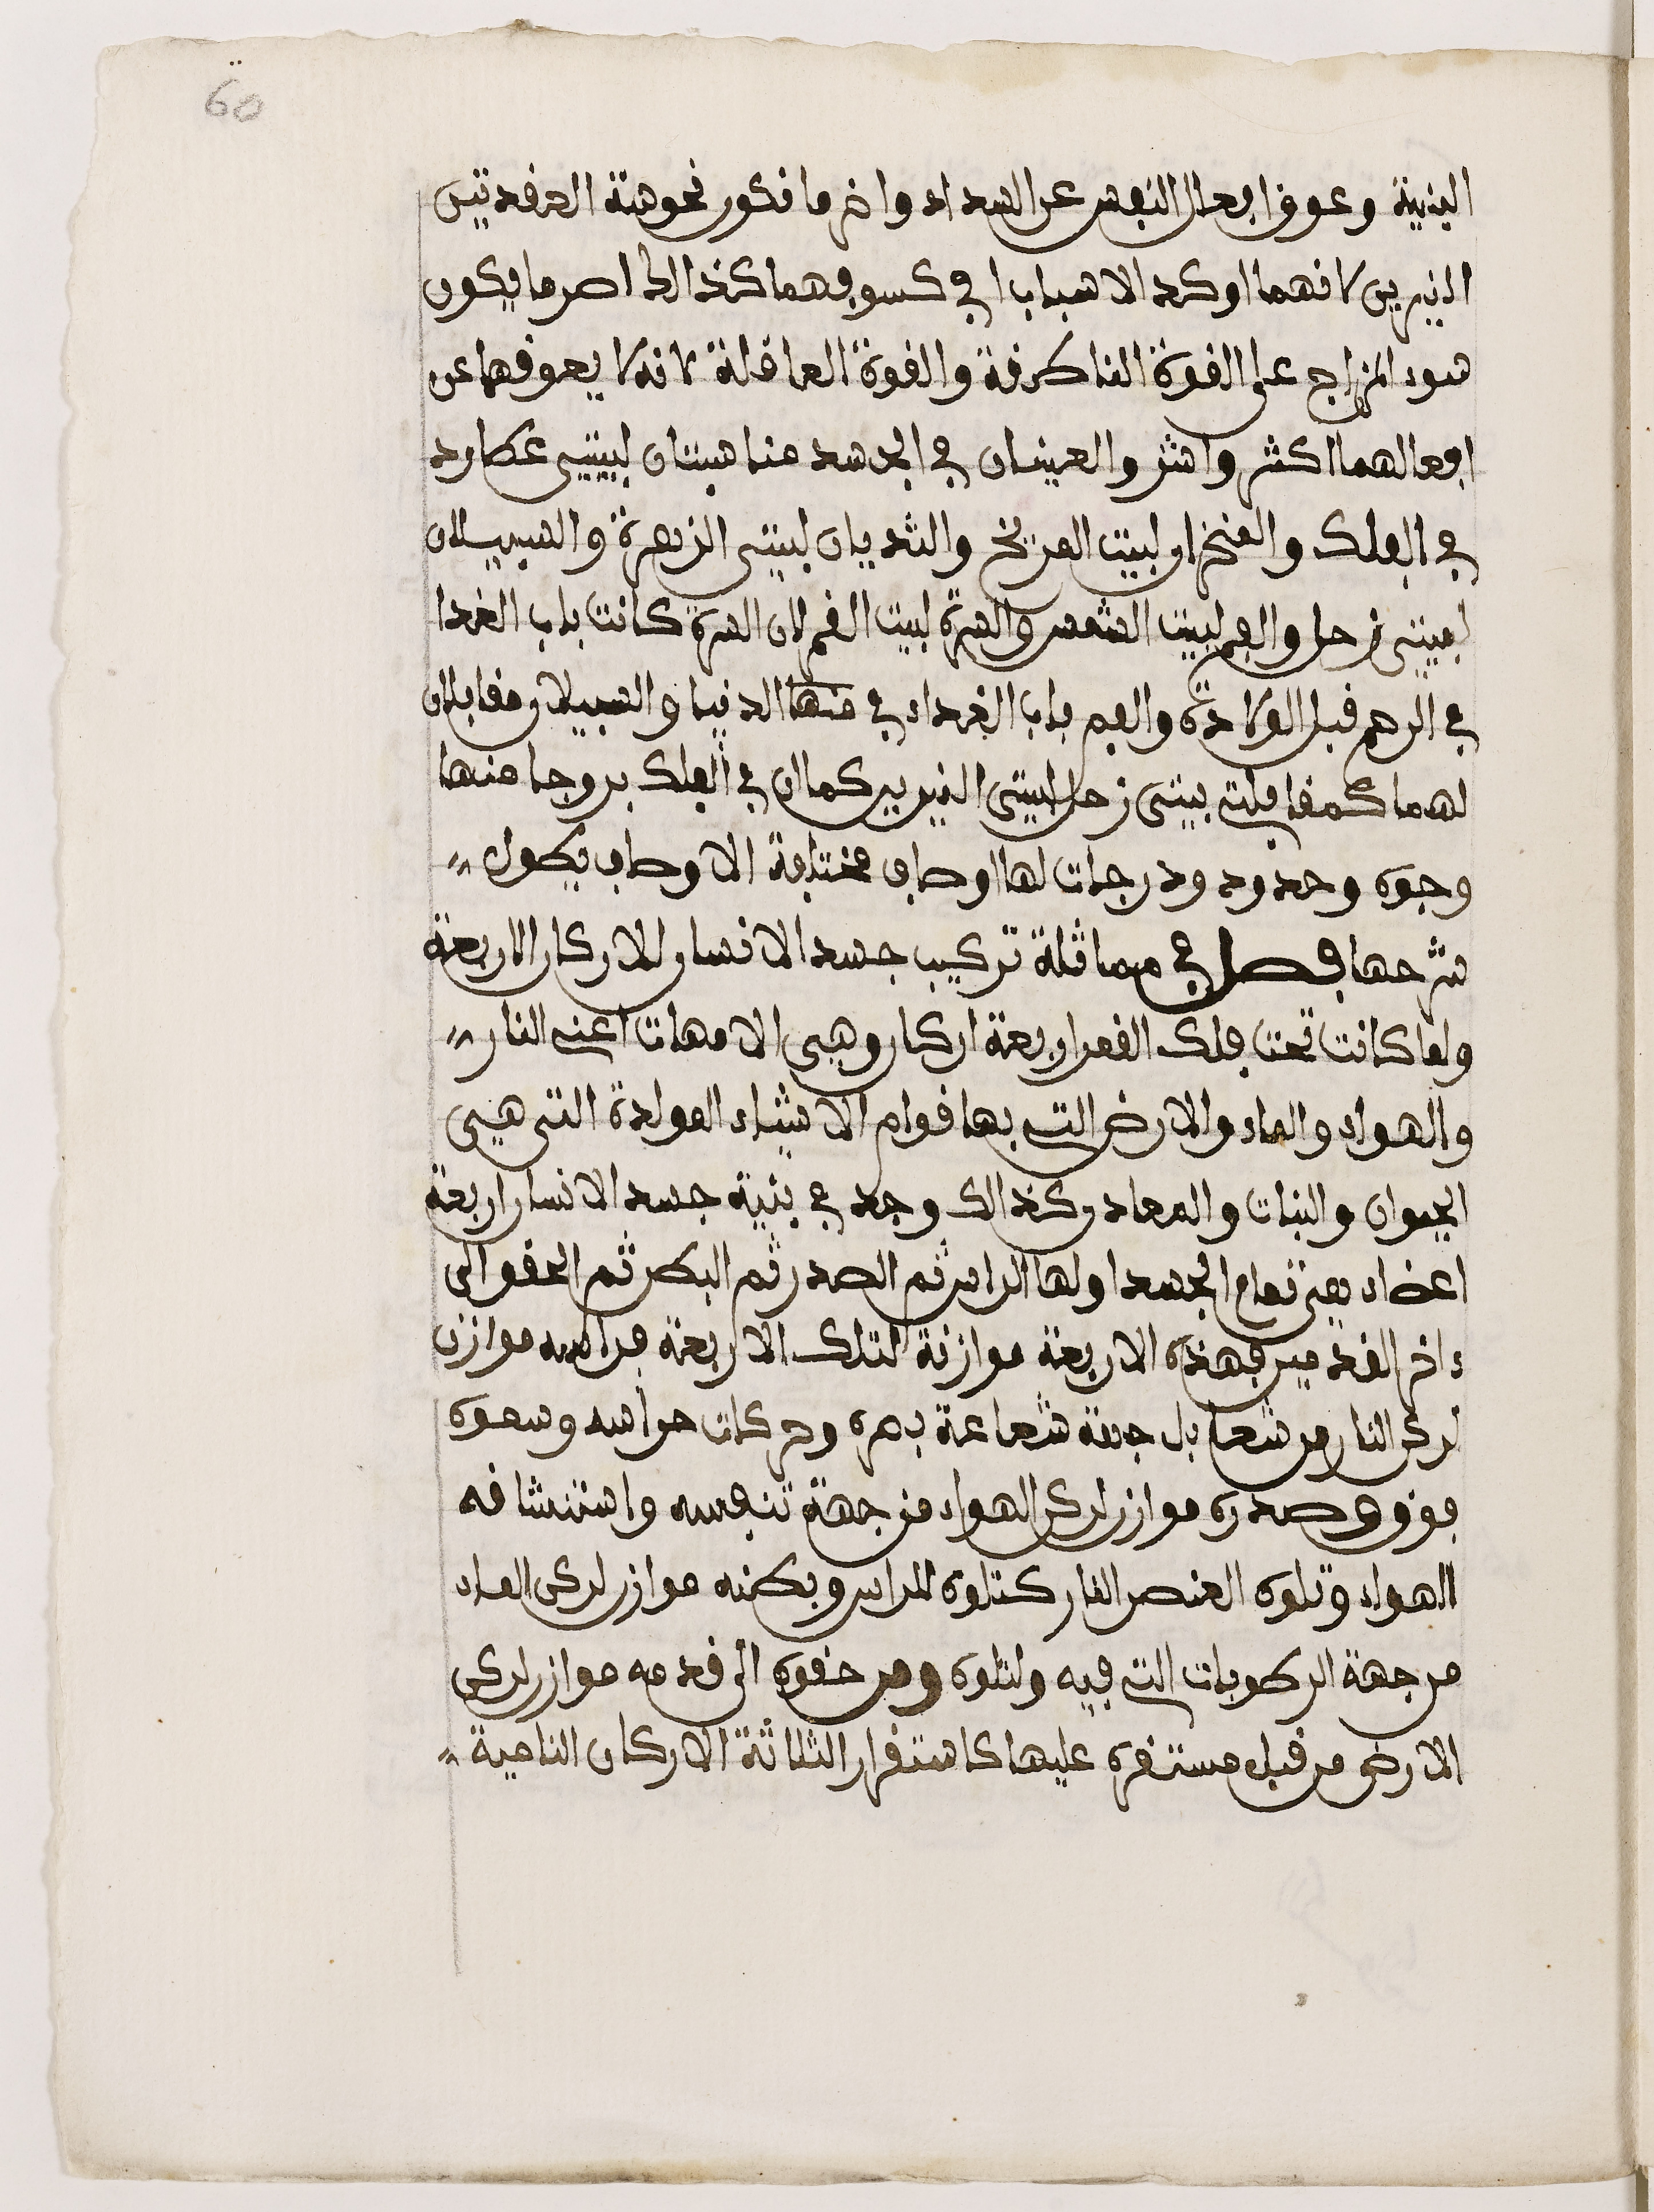 60
البنية وعوق افعال النفس عن السداد واضر ما تكون نحوسة العقدتين
النيرين لانهما اوكد الاسباب في كسوفهما كذالك اضر ما يكون
سود المزاج على القوة الناطقة والقوة العاقلة لانه لا يعوقهما عن
افعالهما اكثر واشر والعينان في الجسد مناسبتان لبيتي عطارد
في الفلك والمنخران لبيت المريخ والثديان لبيتي الزهرة والسبيلان
لبيتي زحل والفم لبيت الشمس والسرة لبيت القمر لان السرة كانت باب الغذا
في الرحم قبل الولادة والفم باب الغداء في منها الدنيا والسبيلان مقابلان
لهما كمقابلة بيتي زحل لبيتي النيرين كما ان في الفلك بروجا منها
وجوه وحدود ودرجات لها اوصاف مختلفة الاوصاف يطول
شرحها فصل في مماثلة تركيب جسد الانسان للاركان الاربعة
ولما كانت تحت فلك القمر اربعة اركان وهي الامهات اعني النار
والهواء والماء والارض التي بها قوام الاشياء المولدة التي هي
الحيوان والنبات والمعادن كذالك وجد في بنية جسد الانسان اربعة
اعضاء هي تمام الجسد اولها الراس ثم الصدر ثم البطن ثم الحقو الى
ءاخر القدمين فهذه الاربعة موازنة لتلك الاربعة فراسه موازن
لركن النار من شعا بل جهة شعاعة بصره وحركات حواسه وسموه
فوق وصدره موازن لركن الهواء من جهة تنفسه واستنشاقه
الهواء وتلوه العنصر النار كتلوه للراس وبطنه موازن لركن الماء
من جهة الرطوبات التي فيه ولتلوه ومن حقوه الى قدمه موازن لركن
الارض من قبل مستقره عليها كاستقرار الثلاثة الاركان النامية